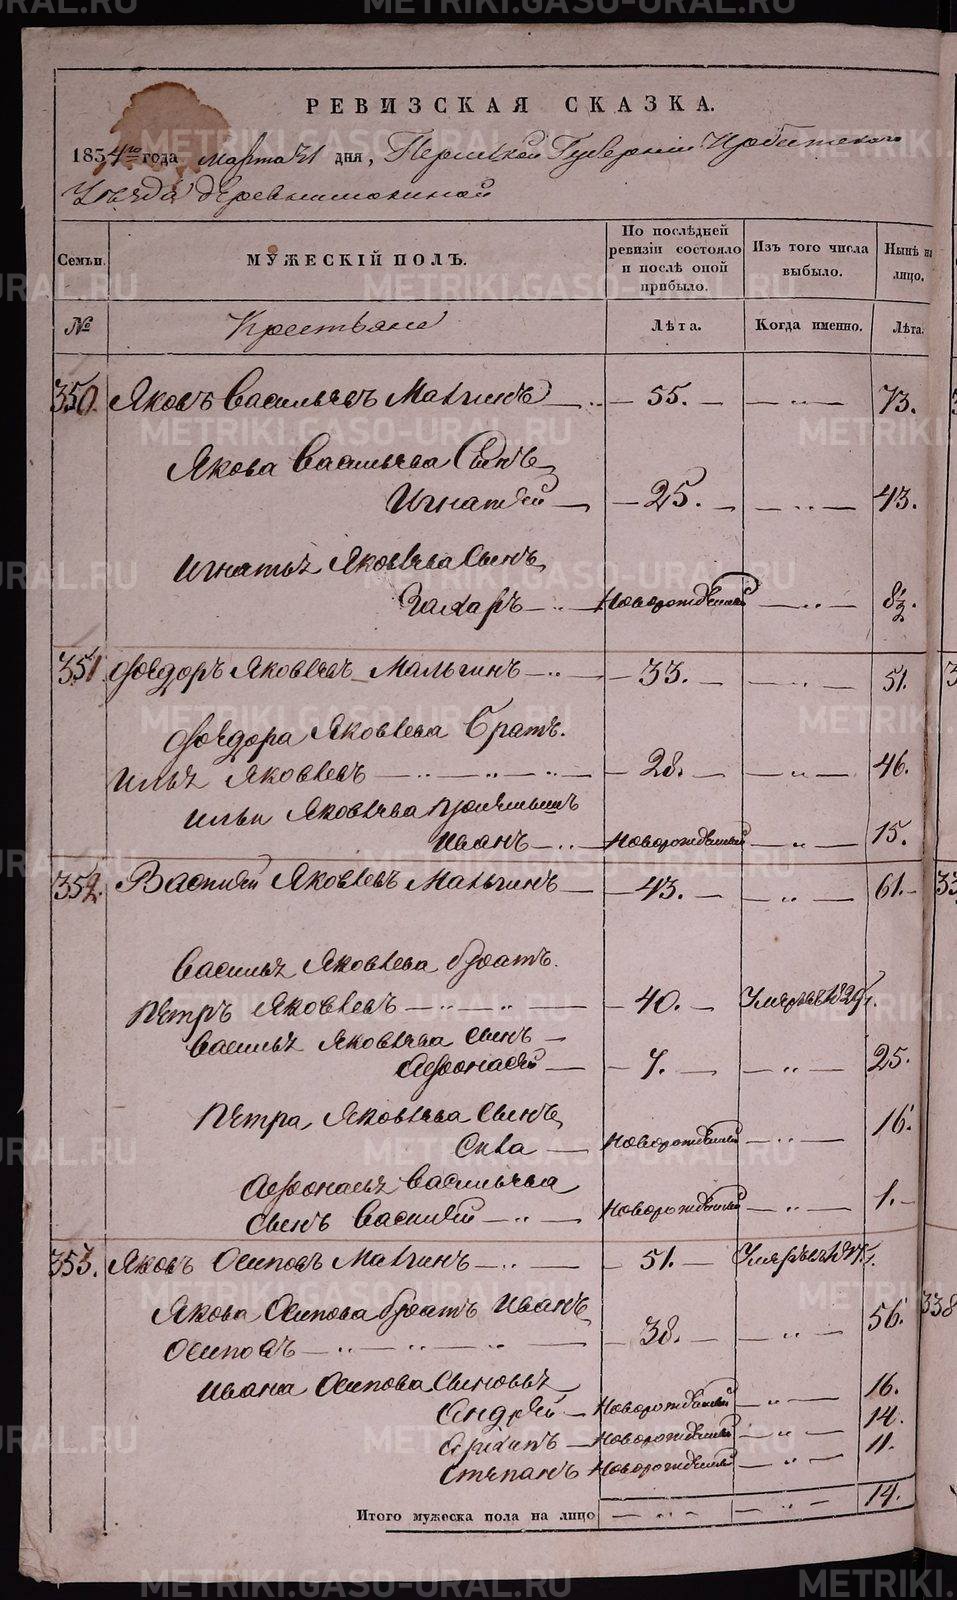 РЕВИЗСКАЯ СКАЗКА.
1854го года марта 21 дня, Пермской Губернiи Ирбитского
Уѣзда деревни
Семьи. МУЖЕСКIЙ ПОЛЪ. По послѣдней ревизiи состояло и послѣ оной прибыло. Изъ того числа выбыло. Нынѣ на лицо.
№ Крестьяне Лѣта. Когда именно. Лѣта.
350. Яковъ Васильевъ Малгинъ — 55. — „ — 73.
Якова Васильева Сынъ
Игнатiй — 25. — „ — 43.
Игнатья Яковлева Сынъ
Захаръ — Новорожденный — „ — 8½.
351. Фѳедоръ Яковлевъ Мальгинъ — 33. — „ — 51.
Фѳедора Яковлева Братъ.
Илья Яковлевъ — 28. — „ — 46.
Ильи Яковлева
Иванъ — Новорожденный — „ — 15.
352. Василiй Яковлевъ Мальгинъ — 43. — „ — 61.
Василья Яковлева братъ.
Петръ Яковлевъ — 40. —
Василья Яковлева сынъ
Афонасiй — 7. — „ — 25.
Петра Яковлева Сынъ
Сава — Новорожденный — „ — 16.
Афонасья Васильева
Сынъ Василiй — Новорожденный — „ — 1.
353. Яковъ Осиповъ Малгинъ — 51. —
Якова Осипова братъ Иванъ
Осиповъ — 38. — „ — 56.
Ивана Осипова Сыновья
Андрѣй — Новорожденный — „ — 16.
Архипъ — Новорожденный — „ — 14.
Степанъ Новорожденный — „ — 11.
Итого мужеска пола на лицо — „ — „ — 14.
338
METRIKI.GASO-URAL.RU